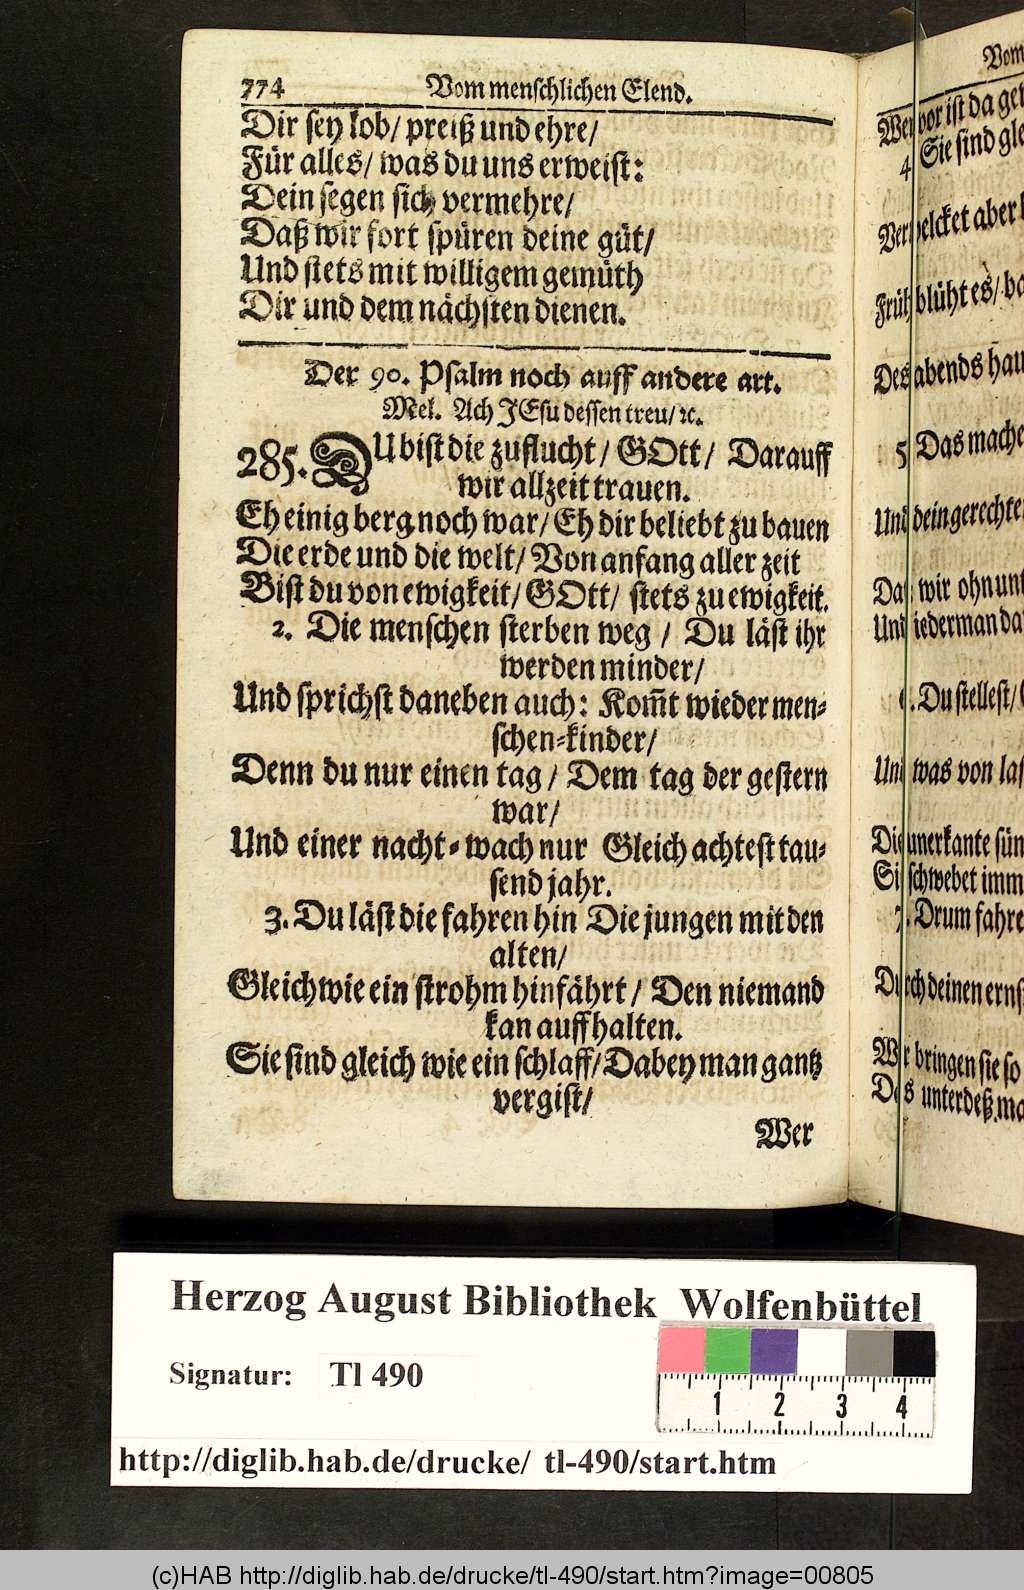 774 Vom menschlichen Elend.
Dir sey lob/ preiß und ehre/
Für alles/ was du uns erweist:
Dein segen sich vermehre/
Daß wir fort spüren deine güt/
Und stets mit willigem gemüth
Dir und dem nächsten dienen.
Der 90. Psalm noch auff andere art.
Mel. Ach JEsu dessen treu/ ꝛc.
285. DU bist die zuflucht/ GOtt/ Darauff
wir allzeit trauen.
Eh einig berg noch war/ Eh dir beliebt zu bauen
Die erde und die welt/ Von anfang aller zeit
Bist du von ewigkeit/ GOtt/ stets zu ewigkeit.
2. Die menschen sterben weg/ Du läst ihr
werden minder/
Und sprichst daneben auch: Kom̃t wieder men-
schen-kinder/
Denn du nur einen tag/ Dem tag der gestern
war/
Und einer nacht-wach nur Gleich achtest tau-
send jahr.
3. Du läst die fahren hin Die jungen mit den
alten/
Gleich wie ein strohm hinfährt/ Den niemand
kan auffhalten.
Sie sind gleich wie ein schlaff/ Dabey man gantz
vergist/
Wer
Vom
Wer vor ist da
4. Sie sind
Verwelcket aber
Früh blüht es/
Des abends
5. Das mache
Und dein gerechter
Daß wir ohn
Und iederman
Du stellest/
Und was von
Die unerkante
Sie schwebet
7. Drum fahre
Durch deinen
Wir bringen sie so
Das unterdeß
Herzog August Bibliothek Wolfenbüttel
Signatur: Tl 490
1 2 3 4
http://diglib.hab.de/drucke/ tl-490/start.htm
(c)HAB http://diglib.hab.de/drucke/tl-490/start.htm?image=00805